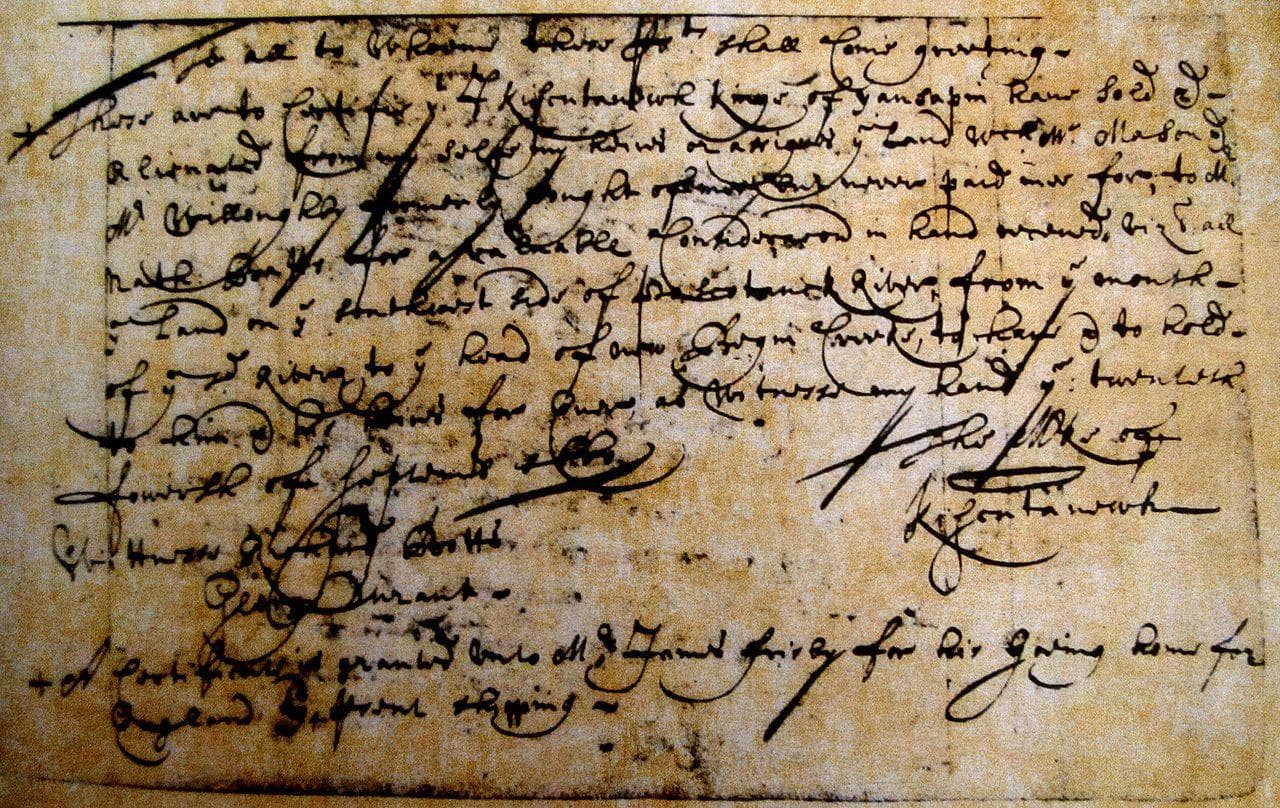 To all to whome these prsts shall Come greeting
These are to Certifie yt I Kiscutanewh Kinge of yansapin have Sold &
Alienated from my selfe my heires or assignes ye Land wch Mr Mason &
Mr Willoughby formerly bought of mee but never paid mee for, to Mr
Nath Batts for a valuable Consideracon in hand received, viz all
ye Land on ye southwest side of pascotanck River, from ye mouth
of ye sd River to ye head of new Begin Creeke, to have & to hold
to him & his heires for Ever, as Witnesse my hand ye twenteth
fourth of Septemr 1660
The Mke of
Kiscutanewh
Wittnesse Batts
Geo: Durant
A Certificate is granted unto Mr James frisby for his Going home for
England in present shipping